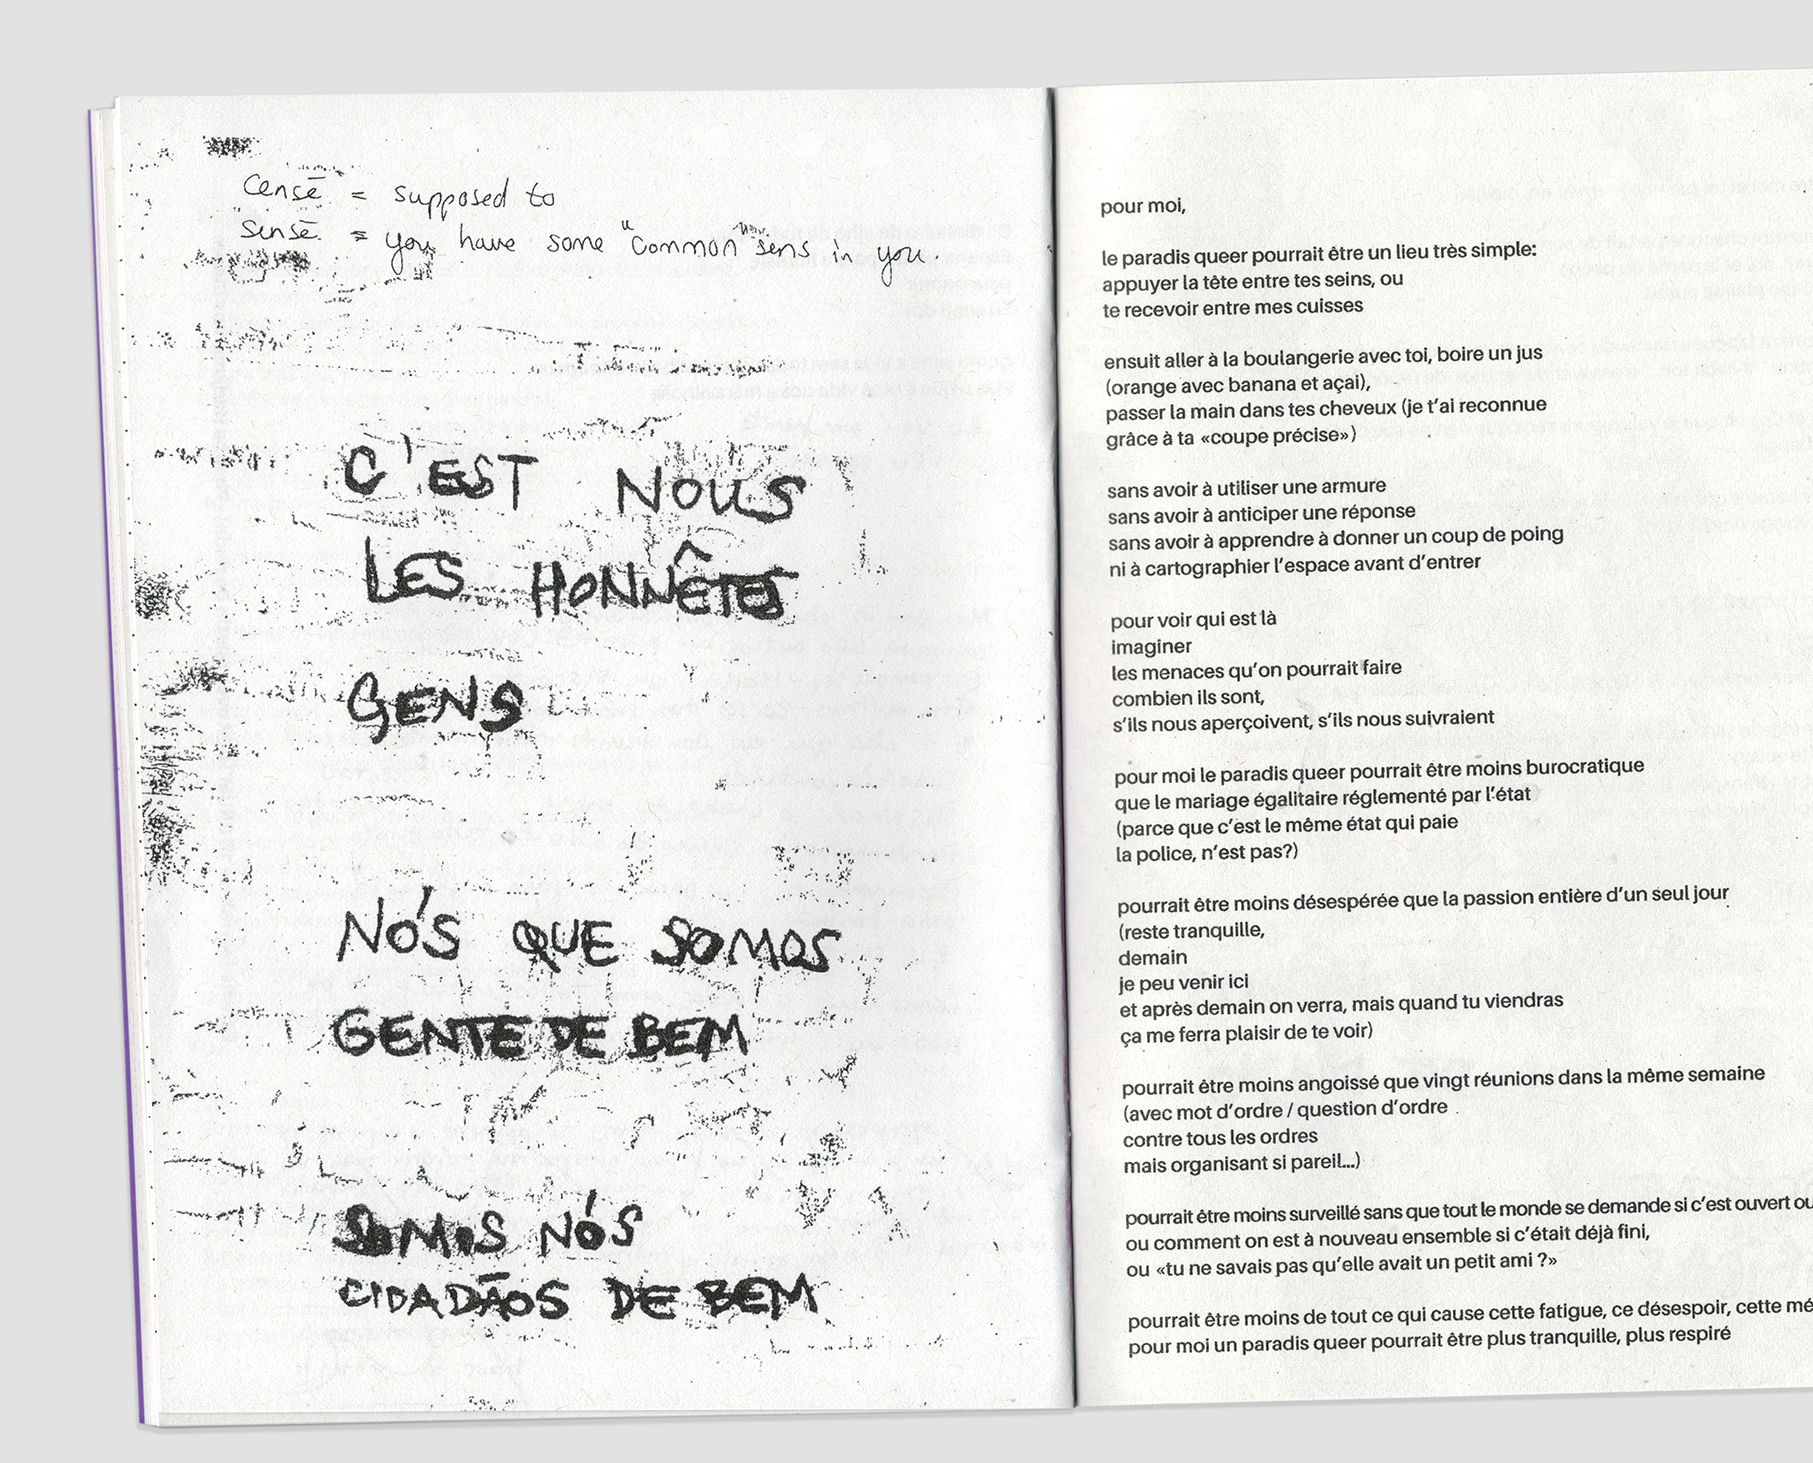 censé = supposed to
sensé = you have some "common" sens in you.
C'EST NOUS
LES HONNÊTES
GENS
NÓS QUE SOMOS
GENTE DE BEM
SOMOS NÓS
CIDADÃOS DE BEM
pour moi,
le paradis queer pourrait être un lieu très simple:
appuyer la tête entre tes seins, ou
te recevoir entre mes cuisses
ensuit aller à la boulangerie avec toi, boire un jus
(orange avec banana et açai),
passer la main dans tes cheveux (je t'ai reconnue
grâce à ta «coupe précise»)
sans avoir à utiliser une armure
sans avoir à anticiper une réponse
sans avoir à apprendre à donner un coup de poing
ni à cartographier l'espace avant d'entrer
pour voir qui est là
imaginer
les menaces qu'on pourrait faire
combien ils sont,
s'ils nous aperçoivent, s'ils nous suivraient
pour moi le paradis queer pourrait être moins burocratique
que le mariage égalitaire réglementé par l'état
(parce que c'est le même état qui paie
la police, n'est pas?)
pourrait être moins désespérée que la passion entière d'un seul jour
(reste tranquille,
demain
je peu venir ici
et après demain on verra, mais quand tu viendras
ça me ferra plaisir de te voir)
pourrait être moins angoissé que vingt réunions dans la même semaine
(avec mot d'ordre / question d'ordre
contre tous les ordres
mais organisant si pareil...)
pourrait être moins surveillé sans que tout le monde se demande si c'est ouvert ou
ou comment on est à nouveau ensemble si c'était déjà fini,
ou «tu ne savais pas qu'elle avait un petit ami ?»
pourrait être moins de tout ce qui cause cette fatigue, ce désespoir, cette
pour moi un paradis queer pourrait être plus tranquille, plus respiré